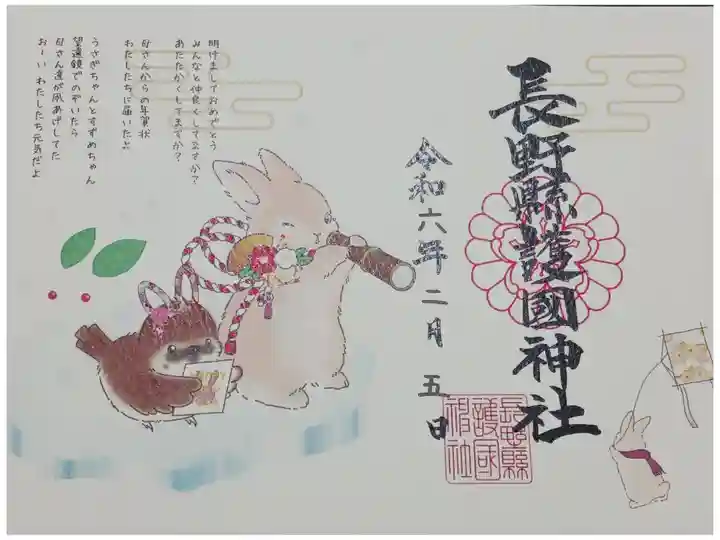 長野縣護國神社
令和六年二月五日
長野縣
護國
神社
明けましておめでとう
みんなと仲良くしてますか?
あたたかくしてますか?
母さんからの年賀状
わたしたちに届いたよ
うさぎちゃんとすずめちゃん
望遠鏡でのぞいたら
母さん達が凧あげしてた
おーい わたしたち元気だよ